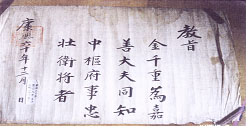 教旨
金千重為嘉
善大夫同知
中樞府事忠
壯衛將者
康熙六十年十二月 日